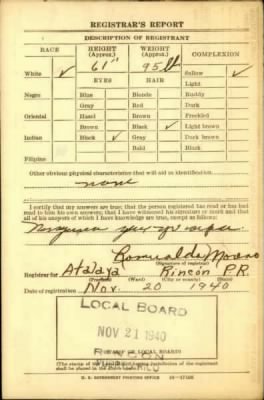 REGISTRAR'S REPORT
DESCRIPTION OF REGISTRANT
RACE HEIGHT (Approx.) WEIGHT (Approx.) COMPLEXION
White ✓ 61" 95 lb Sallow ✓
EYES HAIR Light
Negro Blue Blonde Ruddy
Gray Red Dark
Oriental Hazel Brown Freckled
Brown Black ✓ Light brown
Indian Black ✓ Gray Dark brown
Bald Black
Filipino
Other obvious physical characteristics that will aid in identification
none
I certify that my answers are true; that the person registered has read or has had
read to him his own answers; that I have witnessed his signature or mark and that
all of his answers of which I have knowledge are true, except as follows:
Romualda Moreno
(Signature of registrar)
Registrar for Atalaya Rincón P.R.
(Precinct) (Ward) (City or county) (State)
Date of registration Nov. 20 1940
LOCAL BOARD
NOV 21 1940
RINCON
(STAMP OF LOCAL BOARD)
(The stamp of the Local Board having jurisdiction of the registrant
shall be placed in the above space)
U. S. GOVERNMENT PRINTING OFFICE